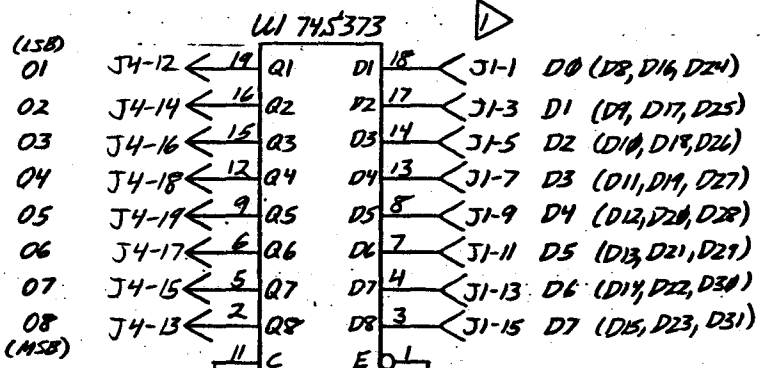 U1 74S373
1
(LSB)
01 J4-12 19 Q1 D1 18 J1-1 DØ (D8, D16, D24)
02 J4-14 16 Q2 D2 17 J1-3 D1 (D9, D17, D25)
03 J4-16 15 Q3 D3 14 J1-5 D2 (D1Ø, D18, D26)
04 J4-18 12 Q4 D4 13 J1-7 D3 (D11, D19, D27)
05 J4-19 9 Q5 D5 8 J1-9 D4 (D12, D2Ø, D28)
06 J4-17 6 Q6 D6 7 J1-11 D5 (D13, D21, D29)
07 J4-15 5 Q7 D7 4 J1-13 D6 (D14, D22, D3Ø)
08 J4-13 2 Q8 D8 3 J1-15 D7 (D15, D23, D31)
(MSB)
11 C E 1